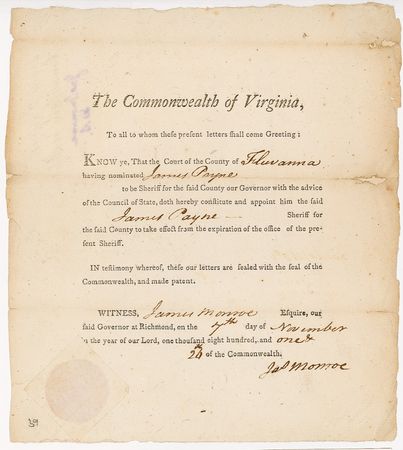 The Commonwealth of Virginia,
To all to whom these present letters shall come Greeting:
KNOW ye, That the Court of the County of Fluvanna
having nominated James Payne
to be Sheriff for the said County our Governor with the advice
of the Council of State, doth hereby constitute and appoint him the said
James Payne — Sheriff for
the said County to take effect from the expiration of the office of the pre-
sent Sheriff.
IN testimony whereof, these our letters are sealed with the seal of the
Commonwealth, and made patent.
WITNESS, James Monroe Esquire, our
said Governor at Richmond, on the 7th day of November
in the year of our Lord, one thousand eight hundred, and one &
26th of the Commonwealth.
Jas Monroe
39